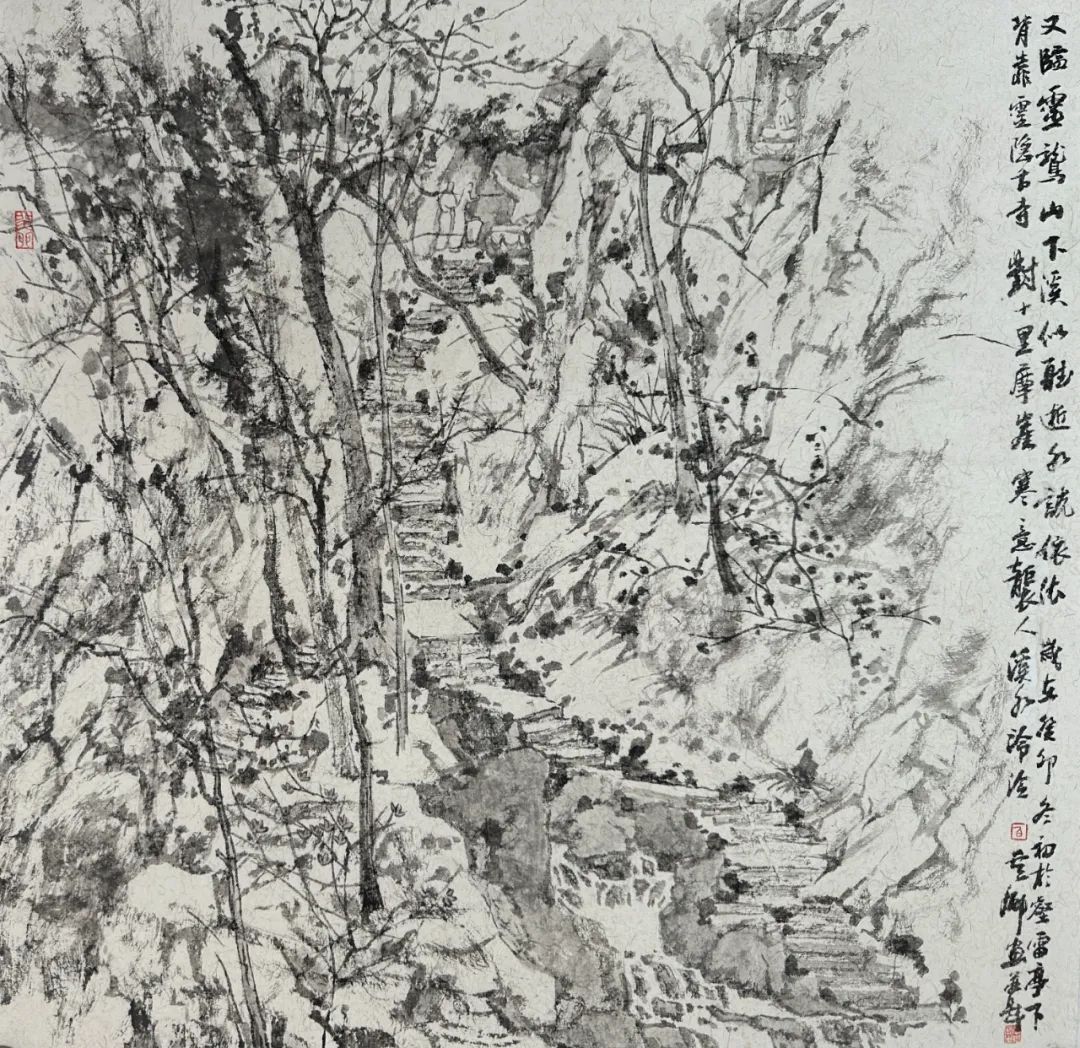 又臨靈鷲山下溪似聽逝水說依依 歲在癸卯冬初於壑雷亭下
背靠靈隱古寺 對十里摩崖 寒意襲人溪水泠泠 畫並題